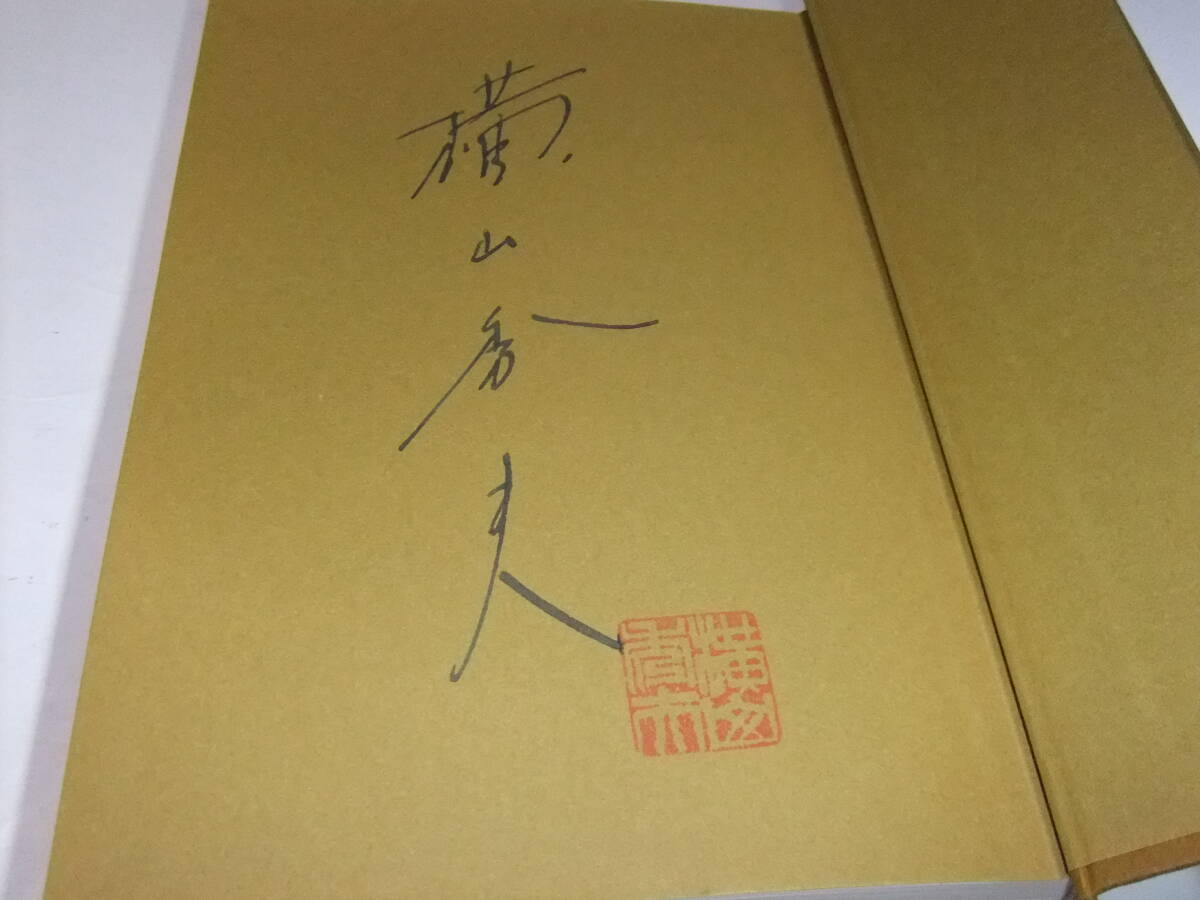 横山秀夫
横山秀夫